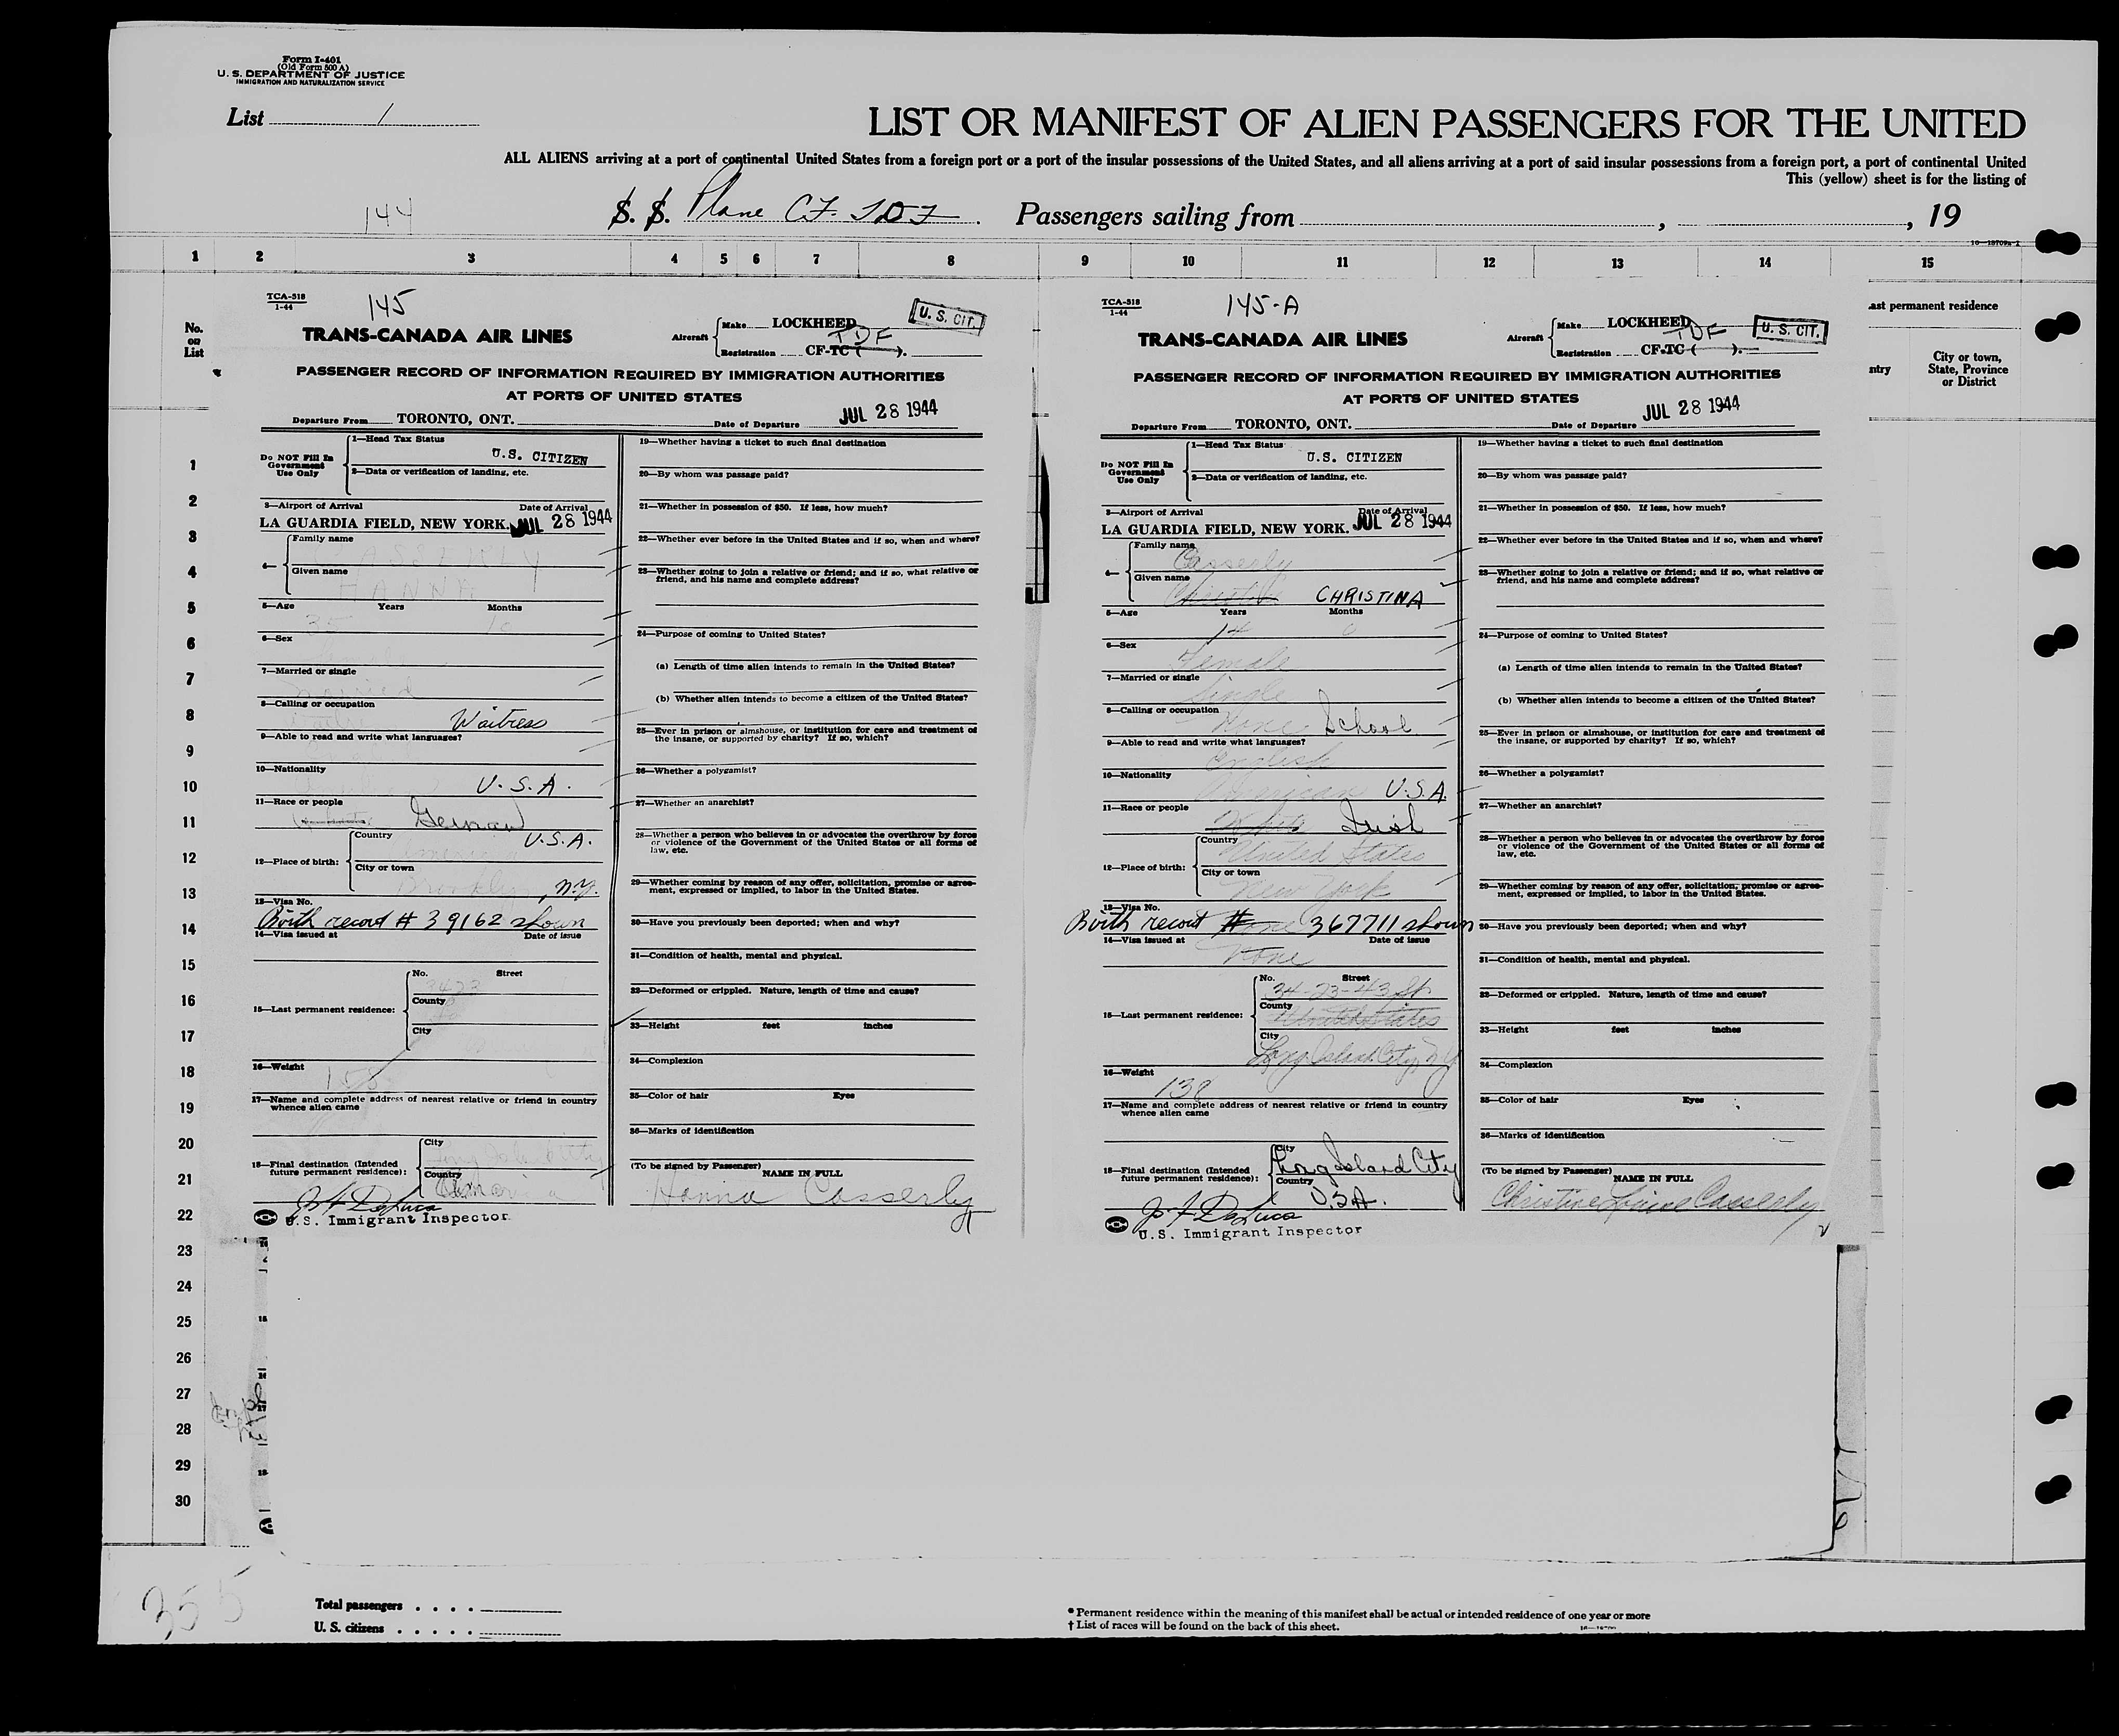 Form I-401
(Old Form 500 A)
U. S. DEPARTMENT OF JUSTICE
IMMIGRATION AND NATURALIZATION SERVICE
List 1
LIST OR MANIFEST OF ALIEN PASSENGERS FOR THE UNITED
ALL ALIENS arriving at a port of continental United States from a foreign port or a port of the insular possessions of the United States, and all aliens arriving at a port of said insular possessions from a foreign port, a port of continental United
This (yellow) sheet is for the listing of
144
S. S. Plane CF. TDF. Passengers sailing from , , 19
1 2 3 4 5 6 7 8 9 10 11 12 13 14 15
No.
on
List
TCA-518
1-44
145
TRANS-CANADA AIR LINES
Aircraft
Make LOCKHEED
TDF
Registration CF-TC ( ).
U. S. CIT.
PASSENGER RECORD OF INFORMATION REQUIRED BY IMMIGRATION AUTHORITIES
AT PORTS OF UNITED STATES
Departure From TORONTO, ONT. Date of Departure JUL 28 1944
Do NOT Fill In
Government
Use Only
1—Head Tax Status
U.S. CITIZEN
2—Data or verification of landing, etc.
3—Airport of Arrival Date of Arrival
LA GUARDIA FIELD, NEW YORK. JUL 28 1944
4—
Family name CASSERLY
Given name HANNA
5—Age Years Months
35 10
6—Sex
7—Married or single
Married
8—Calling or occupation
Waitress
9—Able to read and write what languages?
10—Nationality
U.S.A.
11—Race or people
German
12—Place of birth:
Country U.S.A.
City or town
Brooklyn, N.Y.
13—Visa No.
Birth record # 39162 shown
14—Visa issued at Date of issue
15—Last permanent residence:
No. Street
3423
County
City
16—Weight
158
17—Name and complete address of nearest relative or friend in country
whence alien came
18—Final destination (Intended
future permanent residence):
City
Long Island City
Country
America
U.S. Immigrant Inspector
19—Whether having a ticket to such final destination
20—By whom was passage paid?
21—Whether in possession of $50. If less, how much?
22—Whether ever before in the United States and if so, when and where?
23—Whether going to join a relative or friend; and if so, what relative or
friend, and his name and complete address?
24—Purpose of coming to United States?
(a) Length of time alien intends to remain in the United States?
(b) Whether alien intends to become a citizen of the United States?
25—Ever in prison or almshouse, or institution for care and treatment of
the insane, or supported by charity? If so, which?
26—Whether a polygamist?
27—Whether an anarchist?
28—Whether a person who believes in or advocates the overthrow by force
or violence of the Government of the United States or all forms of
law, etc.
29—Whether coming by reason of any offer, solicitation, promise or agree-
ment, expressed or implied, to labor in the United States.
30—Have you previously been deported; when and why?
31—Condition of health, mental and physical.
32—Deformed or crippled. Nature, length of time and cause?
33—Height feet inches
34—Complexion
35—Color of hair Eyes
36—Marks of identification
(To be signed by Passenger) NAME IN FULL
Hanna Casserly
TCA-518
1-44
145-A
TRANS-CANADA AIR LINES
Aircraft
Make LOCKHEED
TDF
Registration CF-TC ( ).
U. S. CIT.
PASSENGER RECORD OF INFORMATION REQUIRED BY IMMIGRATION AUTHORITIES
AT PORTS OF UNITED STATES
Departure From TORONTO, ONT. Date of Departure JUL 28 1944
Do NOT Fill In
Government
Use Only
1—Head Tax Status
U.S. CITIZEN
2—Data or verification of landing, etc.
3—Airport of Arrival Date of Arrival
LA GUARDIA FIELD, NEW YORK. JUL 28 1944
4—
Family name
Casserly
Given name
Christine CHRISTINA
5—Age Years Months
14 0
6—Sex
Female
7—Married or single
Single
8—Calling or occupation
None School
9—Able to read and write what languages?
English
10—Nationality
American U.S.A.
11—Race or people
White Irish
12—Place of birth:
Country
United States
City or town
New York
13—Visa No.
Birth record # None 367711 shown
14—Visa issued at Date of issue
None
15—Last permanent residence:
No. Street
34-23-43 St
County
United States
City
Long Island City, N.Y.
16—Weight
138
17—Name and complete address of nearest relative or friend in country
whence alien came
18—Final destination (Intended
future permanent residence):
City
Long Island City
Country
U.S.A.
U.S. Immigrant Inspector
19—Whether having a ticket to such final destination
20—By whom was passage paid?
21—Whether in possession of $50. If less, how much?
22—Whether ever before in the United States and if so, when and where?
23—Whether going to join a relative or friend; and if so, what relative or
friend, and his name and complete address?
24—Purpose of coming to United States?
(a) Length of time alien intends to remain in the United States?
(b) Whether alien intends to become a citizen of the United States?
25—Ever in prison or almshouse, or institution for care and treatment of
the insane, or supported by charity? If so, which?
26—Whether a polygamist?
27—Whether an anarchist?
28—Whether a person who believes in or advocates the overthrow by force
or violence of the Government of the United States or all forms of
law, etc.
29—Whether coming by reason of any offer, solicitation, promise or agree-
ment, expressed or implied, to labor in the United States.
30—Have you previously been deported; when and why?
31—Condition of health, mental and physical.
32—Deformed or crippled. Nature, length of time and cause?
33—Height feet inches
34—Complexion
35—Color of hair Eyes
36—Marks of identification
(To be signed by Passenger) NAME IN FULL
Christine Louise Casserly
ast permanent residence
ntry
City or town,
State, Province
or District
1
2
3
4
5
6
7
8
9
10
11
12
13
14
15
16
17
18
19
20
21
22
23
24
25
26
27
28
29
30
355
Total passengers . . . .
U. S. citizens . . . . .
* Permanent residence within the meaning of this manifest shall be actual or intended residence of one year or more
† List of races will be found on the back of this sheet.